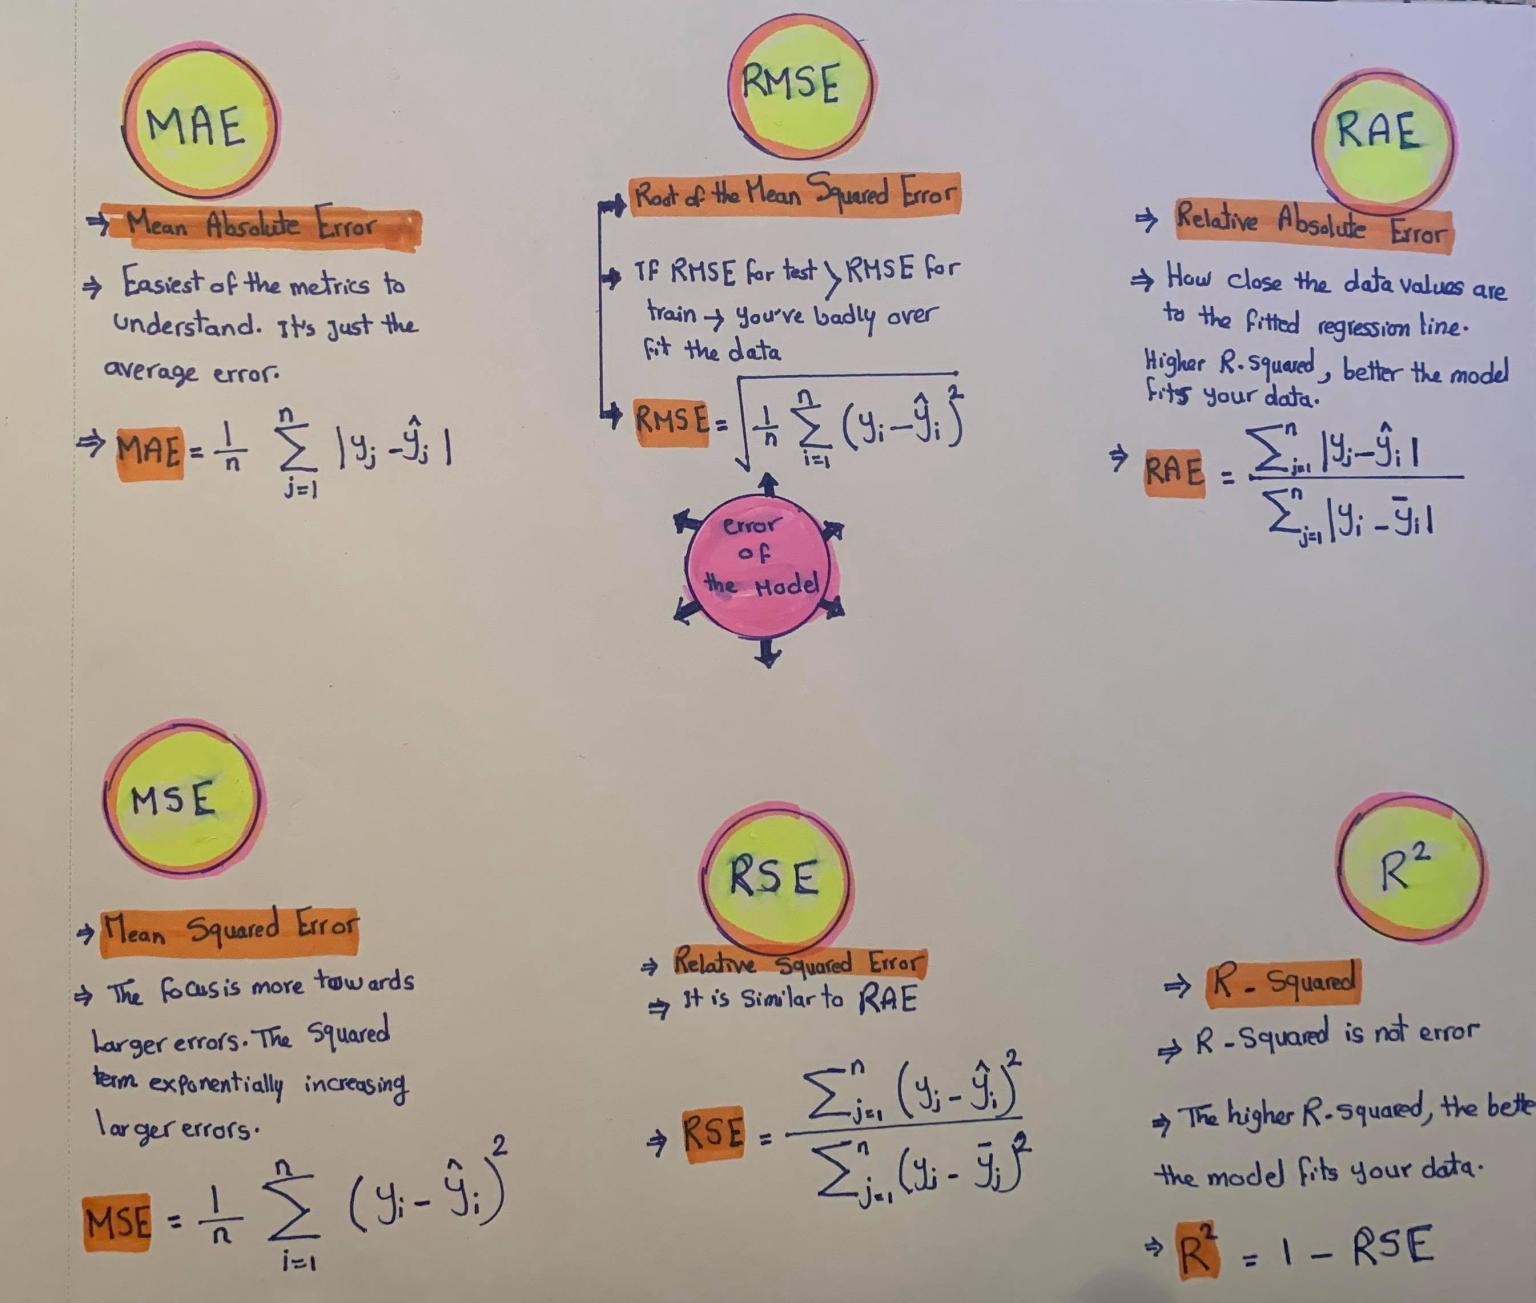 MAE
⇒ Mean Absolute Error
⇒ Easiest of the metrics to
understand. It's just the
average error.
⇒ MAE = 1/n ∑_{j=1}^{n} |y_j - ŷ_j|
RMSE
→ Root of the Mean Squared Error
→ IF RMSE for test > RMSE for
train → you've badly over
fit the data
→ RMSE = √(1/n ∑_{i=1}^{n} (y_i - ŷ_i)²)
RAE
⇒ Relative Absolute Error
⇒ How close the data values are
to the fitted regression line.
Higher R.squared, better the model
fits your data.
⇒ RAE = ∑_{j=1}^{n} |y_j - ŷ_i| / ∑_{j=1}^{n} |y_i - ȳ_i|
error
of
the Model
MSE
⇒ Mean Squared Error
⇒ The focus is more towards
larger errors. The Squared
term exponentially increasing
larger errors.
MSE = 1/n ∑_{i=1}^{n} (y_i - ŷ_i)²
RSE
⇒ Relative Squared Error
⇒ It is Similar to RAE
⇒ RSE = ∑_{j=1}^{n} (y_j - ŷ_i)² / ∑_{j=1}^{n} (y_j - ȳ_j)²
R²
⇒ R - Squared
⇒ R - Squared is not error
⇒ The higher R-squared, the bette
the model fits your data.
⇒ R² = 1 - RSE